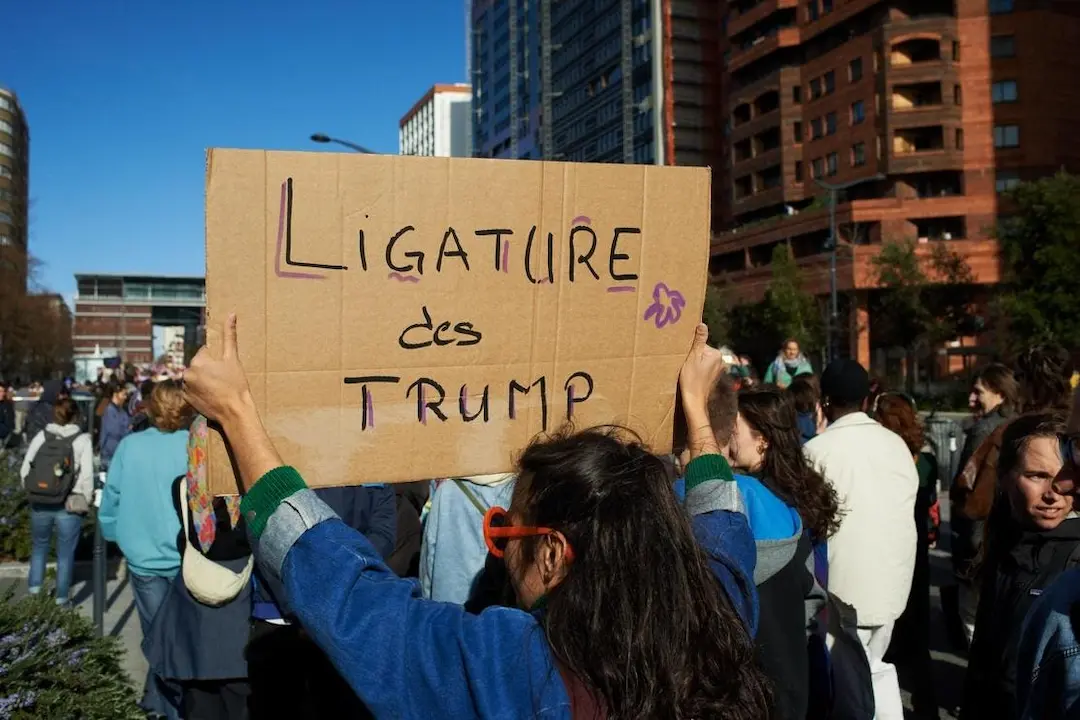 LiGATURE
des
TRUMP